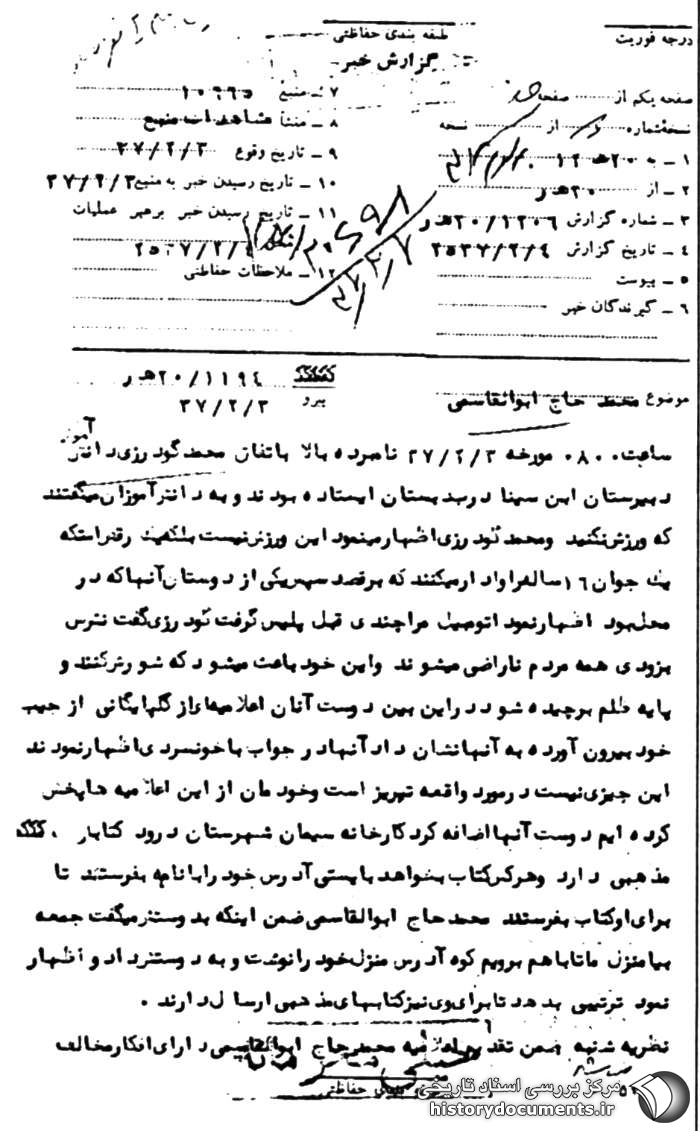 درجه فوریت
طبقه بندی حفاظتی
گزارش خبر
صفحه یکم از صفحه
نسخه شماره از نسخه
۱ ـ به ۲۰۰ هـ ۱۲
۲ ـ از ۲۰ هـ ر
۳ ـ شماره گزارش ۲۰/۱۲۰۶ هـ ر
۴ ـ تاریخ گزارش ۲۵۳۷/۲/۴
۵ ـ پیوست
۶ ـ گیرندگان خبر
۷ ـ منبع ۱۰۶۶۵
۸ ـ منشأ مشاهدات منبع
۹ ـ تاریخ وقوع ۳۷/۲/۳
۱۰ ـ تاریخ رسیدن خبر به منبع ۳۷/۲/۳
۱۱ ـ تاریخ رسیدن خبر برهبر عملیات
۱۲ ـ ملاحظات حفاظتی
موضوع محمد حاج ابوالقاسمی
پیرو ۲۰/۱۱۹۴ هـ ر
۳۷/۲/۳
ساعت ۰۸۰۰ مورخه ۳۷/۲/۳ نامبرده بالا باتفاق محمد گودرزی دانش آموز
دبیرستان ابن سینا درب دبستان ایستاده بودند و به دانش آموزان میگفتند
که ورزش نکنید ومحمد گودرزی اظهار مینمود این ورزش نیست بلکه یک رقص استکه
یک جوان ۱۶ ساله را وادار میکنند که برقصد سپس یکی از دوستان آنها که در
محل بود اظهار نمود اتومبیل مرا چندی قبل پلیس گرفت گودرزی گفت نترس
بزودی همه مردم ناراضی میشوند واین خود باعث میشود که شورش کنند و
پایه ظلم برچیده شود در این بین دوست آنان اعلامیه ای از گلپایگانی از جیب
خود بیرون آورده به آنها نشان داد آنها در جواب با خونسردی اظهار نمودند
این چیزی نیست در مورد واقعه تبریز است وخودمان از این اعلامیه ها پخش
کرده ایم دوست آنها اضافه کرد کارخانه سیمان شهرستان درود کتابهای
مذهبی دارد وهرکس کتاب بخواهد بایستی آدرس خود را با نامه بفرستند تا
برای او کتاب بفرستند محمد حاج ابوالقاسمی ضمن اینکه بدوستش میگفت جمعه
بیا منزل ما تا باهم برویم کوه آدرس منزل خود را نوشت و به دوستش داد و اظهار
نمود ترتیبی بدهد تا برای وی نیز کتابهای مذهبی ارسال دارند .
نظریه شنبه ضمن تقدیم اعلامیه محمد حاج ابوالقاسمی دارای افکار مخالف
طبقه بندی حفاظتی
مرکز بررسی اسناد تاریخی
historydocuments.ir